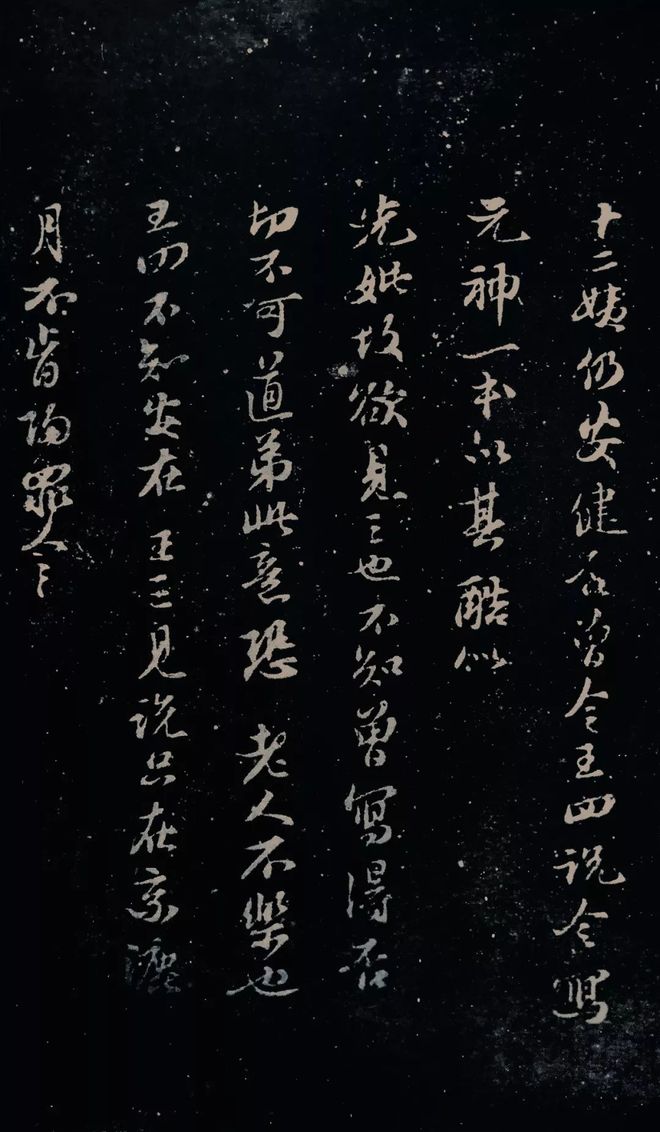 十二姨仍安健否曾令王四說令寫
元神一本以其酷似
先妣故欲見之也不知曾寫得否
切不可道弟此意恐 老人不樂也
王四不知安在 王三見說只在京
月不皆陶罪人之